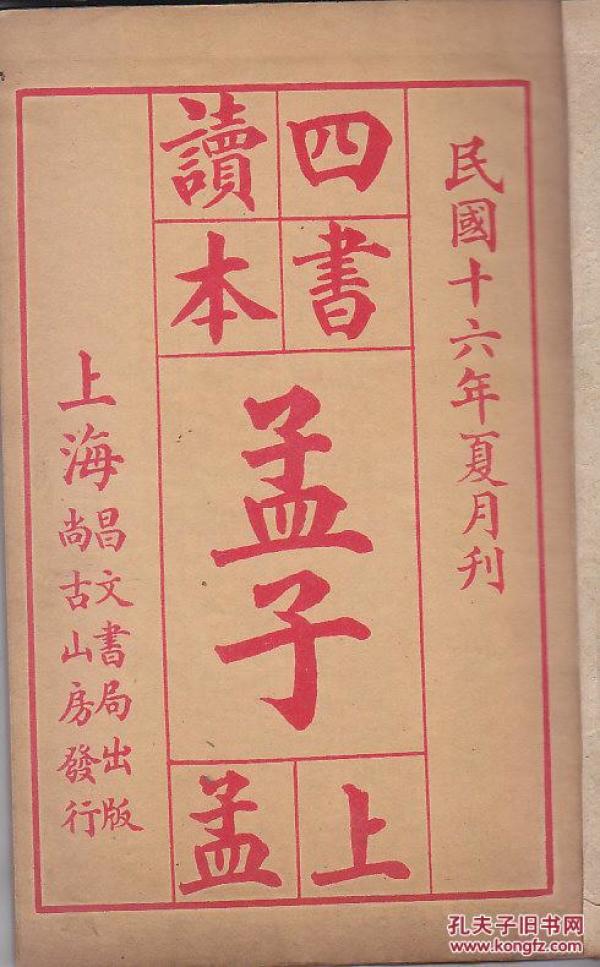 民國十六年夏月刊
四書
讀本
孟子
上
孟
上海
昌文書局出版
尚古山房發行
孔夫子旧书网
www.kongfz.com